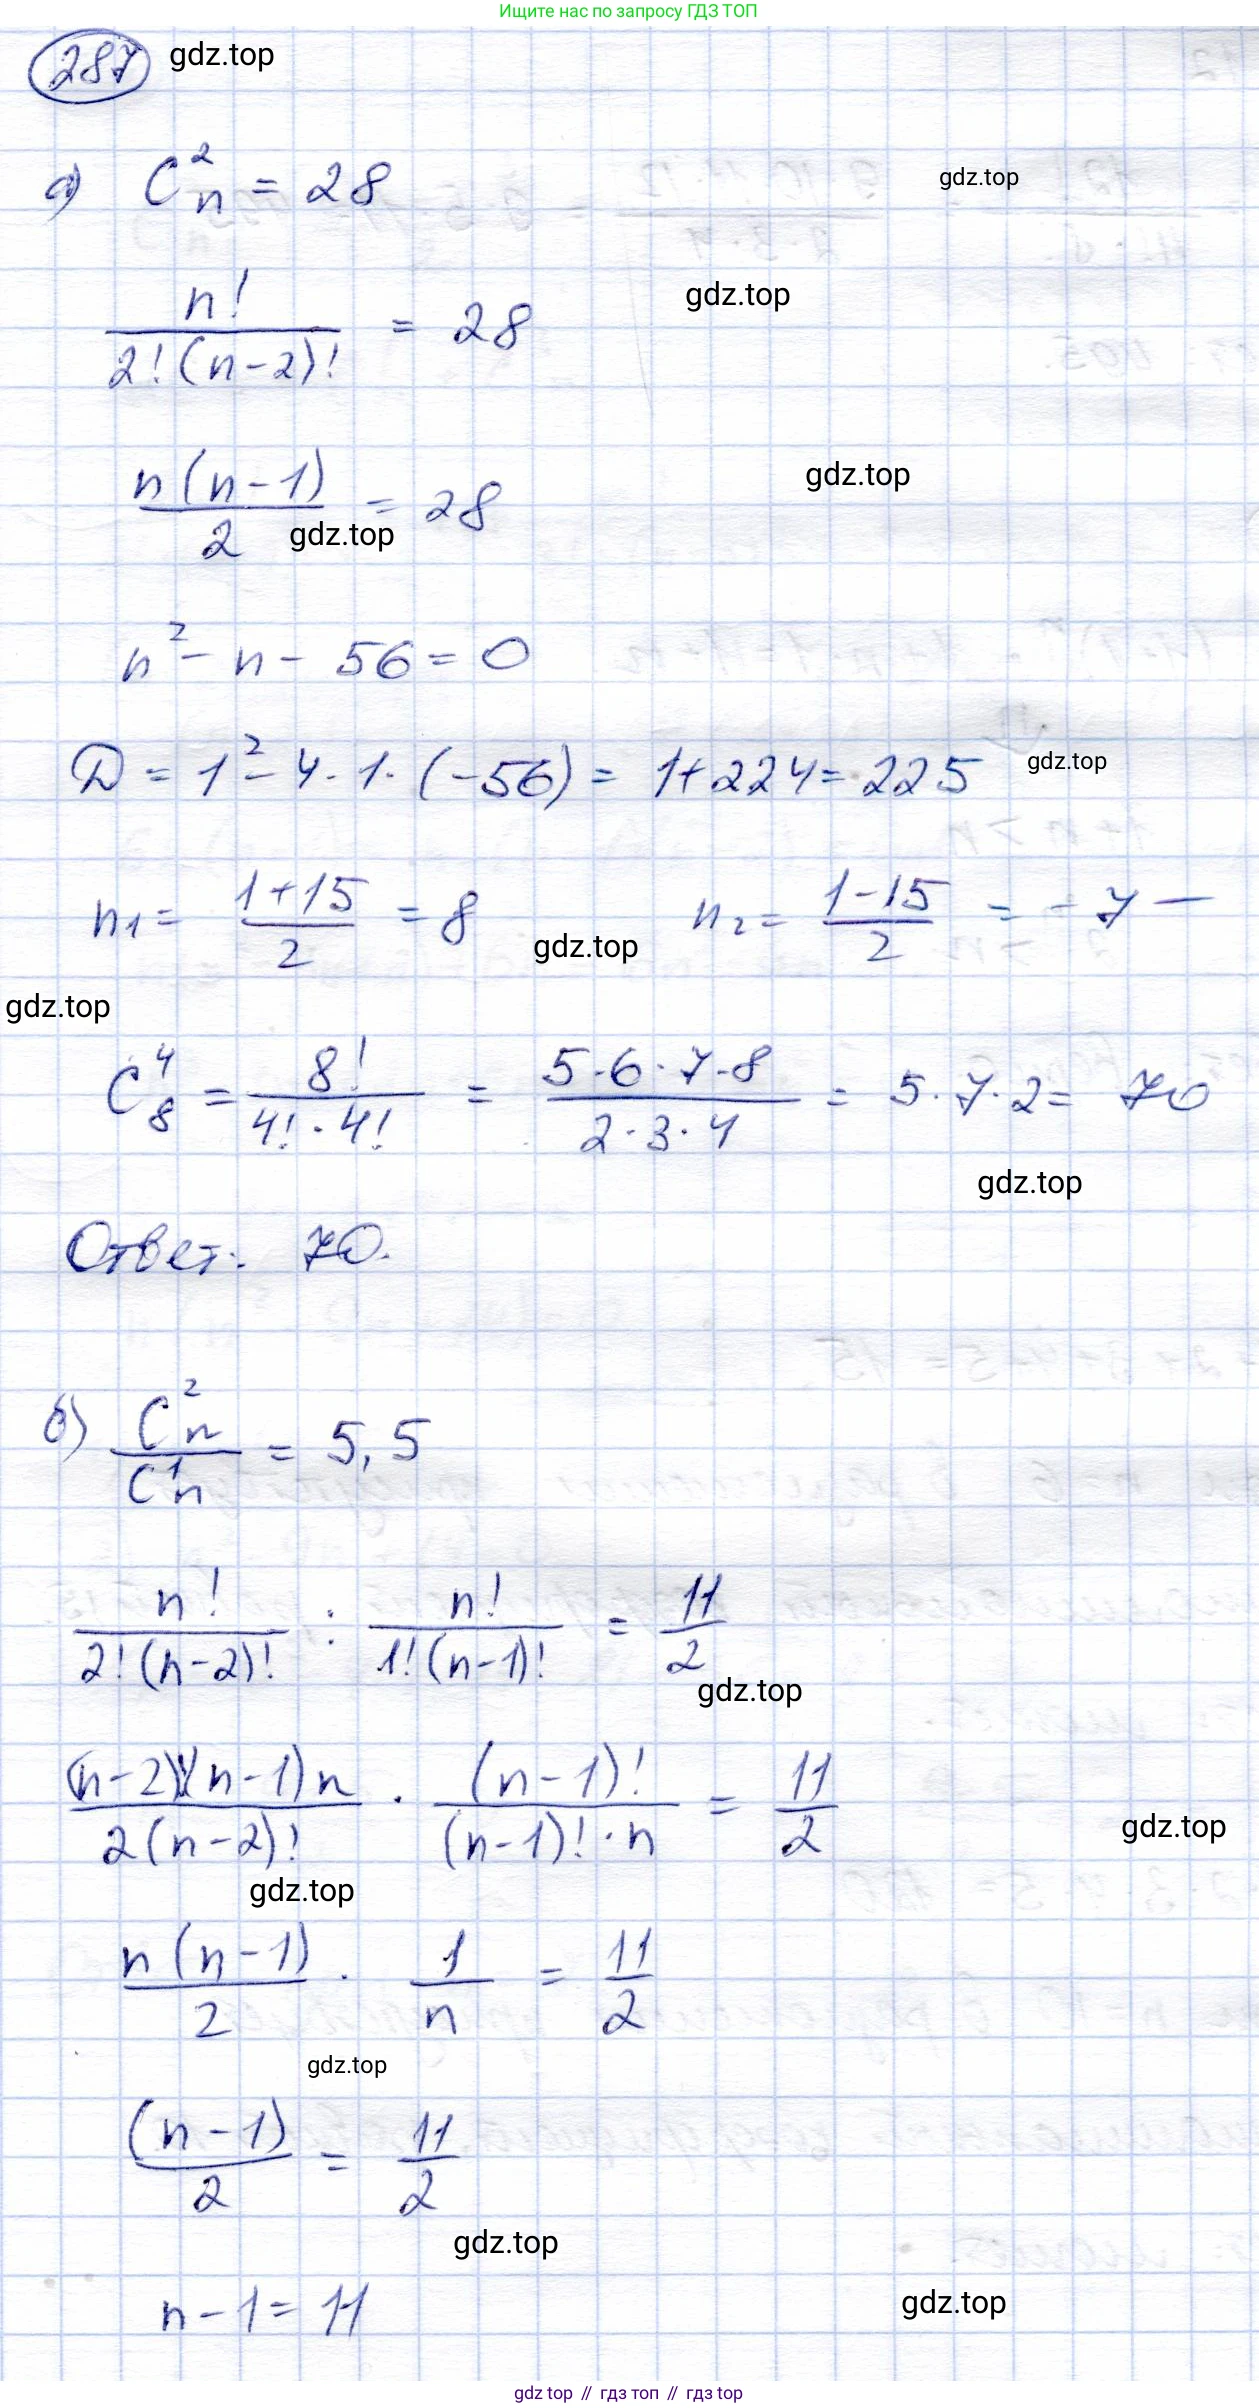 Ищите нас по запросу ГДЗ ТОП
287 gdz.top
а) C²ₙ = 28 gdz.top
n! / (2!(n-2)!) = 28 gdz.top
n(n-1) / 2 = 28 gdz.top
gdz.top
n² - n - 56 = 0
D = 1² - 4·1·(-56) = 1+224 = 225 gdz.top
n₁ = (1+15) / 2 = 8 gdz.top n₂ = (1-15) / 2 = -7 —
gdz.top
C⁴₈ = 8! / (4!·4!) = (5·6·7·8) / (2·3·4) = 5·7·2 = 70
gdz.top
Ответ: 70.
б) C²ₙ / C¹ₙ = 5,5
n! / (2!(n-2)!) : n! / (1!(n-1)!) = 11/2
gdz.top
(n-2)!(n-1)n / (2(n-2)!) · (n-1)! / ((n-1)!·n) = 11/2
gdz.top
gdz.top
n(n-1) / 2 · 1/n = 11/2
gdz.top
(n-1) / 2 = 11/2
gdz.top
n-1 = 11 gdz.top
gdz top // гдз топ // гдз top